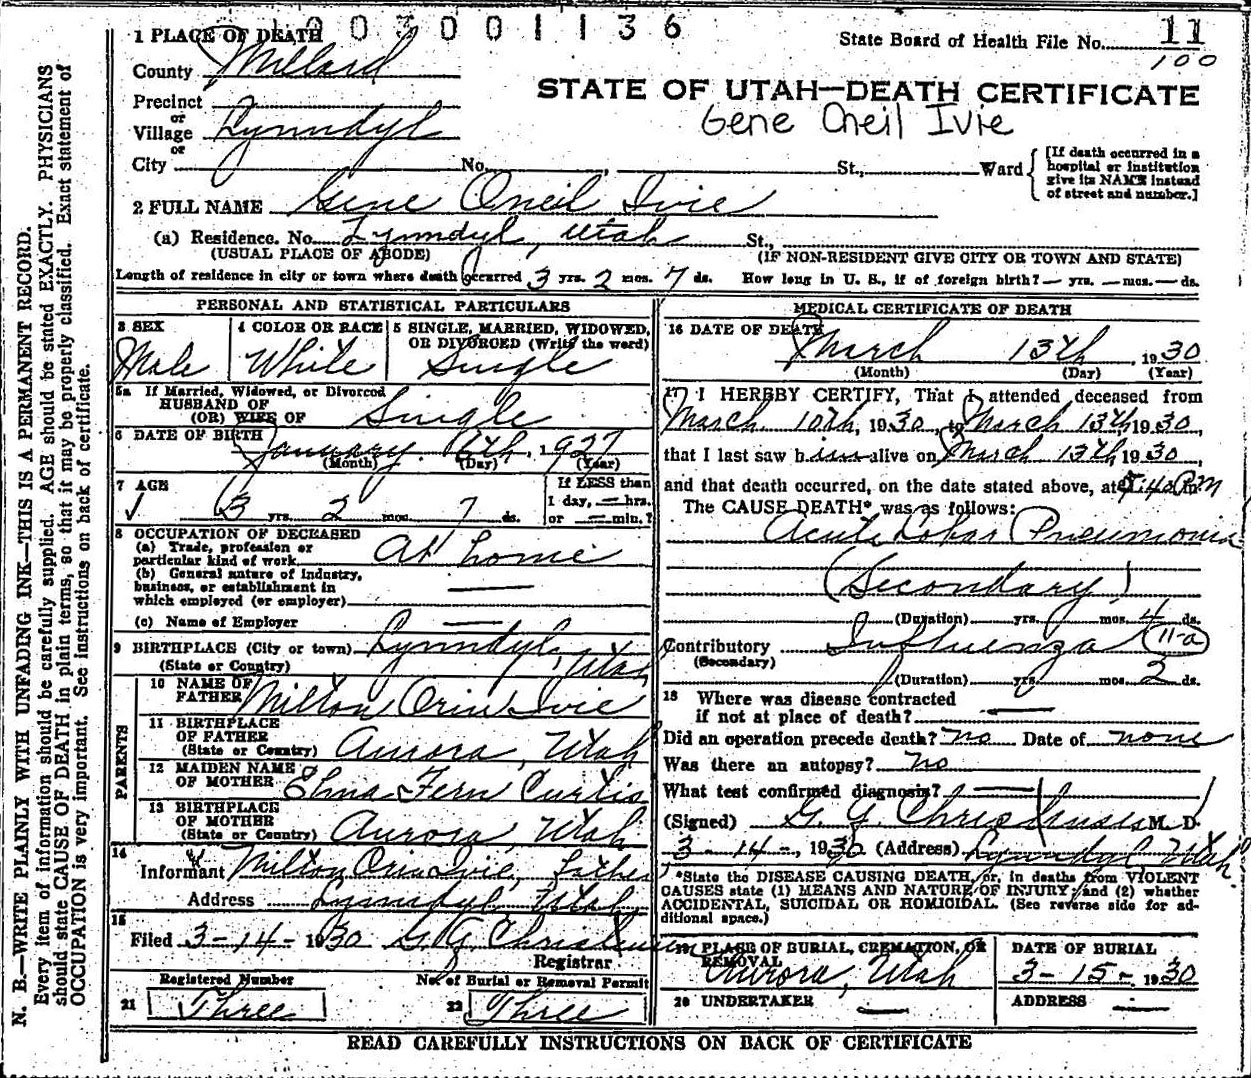 1003001136
State Board of Health File No. 11
100
1 PLACE OF DEATH
County Millard
Precinct
or
Village Lynndyl
or
City No. , St., Ward
[If death occurred in a hospital or institution give its NAME instead of street and number.]
STATE OF UTAH—DEATH CERTIFICATE
Gene Oneil Ivie
2 FULL NAME Gene Oneil Ivie
(a) Residence. No. Lynndyl, Utah St.,
(USUAL PLACE OF ABODE) (IF NON-RESIDENT GIVE CITY OR TOWN AND STATE)
Length of residence in city or town where death occurred 3 yrs. 2 mos. 7 ds. How long in U. S., if of foreign birth? — yrs. — mos. — ds.
PERSONAL AND STATISTICAL PARTICULARS
3 SEX
Male
4 COLOR OR RACE
White
5 SINGLE, MARRIED, WIDOWED, OR DIVORCED (Write the word)
Single
5a If Married, Widowed, or Divorced
HUSBAND OF
(OR) WIFE OF Single
6 DATE OF BIRTH January 6th, 1927
(Month) (Day) (Year)
7 AGE
3 yrs. 2 mos. 7 ds.
If LESS than
1 day, — hrs.
or — min.?
8 OCCUPATION OF DECEASED
(a) Trade, profession or
particular kind of work At home
(b) General nature of industry,
business, or establishment in
which employed (or employer) —
(c) Name of Employer —
9 BIRTHPLACE (City or town) Lynndyl, Utah
(State or Country)
PARENTS
10 NAME OF
FATHER Milton Orin Ivie
11 BIRTHPLACE
OF FATHER
(State or Country) Aurora, Utah
12 MAIDEN NAME
OF MOTHER Elma Fern Curtis
13 BIRTHPLACE
OF MOTHER
(State or Country) Aurora, Utah
14
Informant Milton Orin Ivie, Father
Address Lynndyl Utah
15
Filed 3-14-1930 G. G. Christensen
Registrar
Registered Number
21 Three
No. of Burial or Removal Permit
22 Three
MEDICAL CERTIFICATE OF DEATH
16 DATE OF DEATH
March 13th, 1930
(Month) (Day) (Year)
17 I HEREBY CERTIFY, That I attended deceased from
March 10th, 1930, to March 13th 1930,
that I last saw him alive on March 13th, 1930,
and that death occurred, on the date stated above, at :40 P.M
The CAUSE DEATH* was as follows:
Acute Lobar Pneumonia
(Secondary)
(Duration) yrs. mos. 4 ds.
Contributory Influenza 11-a
(Secondary)
(Duration) yrs. mos. 2 ds.
18 Where was disease contracted
if not at place of death? —
Did an operation precede death? No Date of none
Was there an autopsy? No
What test confirmed diagnosis? —
(Signed) G. G. Christensen M. D.
3-14-, 1930 (Address) Lynndyl Utah.
*State the DISEASE CAUSING DEATH, or, in deaths from VIOLENT
CAUSES state (1) MEANS AND NATURE OF INJURY; and (2) whether
ACCIDENTAL, SUICIDAL OR HOMICIDAL. (See reverse side for ad-
ditional space.)
19 PLACE OF BURIAL, CREMATION, OR
REMOVAL
Aurora, Utah
DATE OF BURIAL
3-15-, 1930
20 UNDERTAKER —
ADDRESS —
READ CAREFULLY INSTRUCTIONS ON BACK OF CERTIFICATE
N. B.—WRITE PLAINLY WITH UNFADING INK—THIS IS A PERMANENT RECORD.
Every item of information should be carefully supplied. AGE should be stated EXACTLY. PHYSICIANS
should state CAUSE OF DEATH in plain terms, so that it may be properly classified. Exact statement of
OCCUPATION is very important. See instructions on back of certificate.